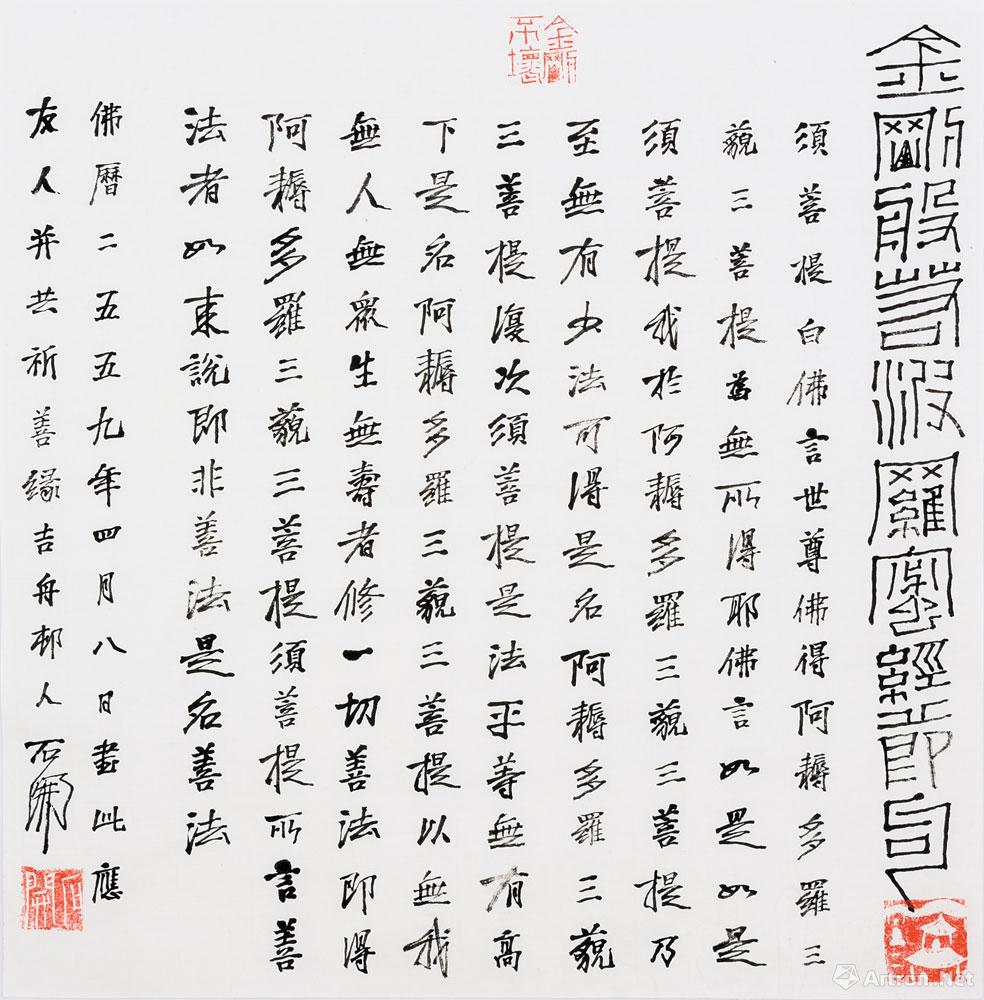 金剛般若波羅蜜經節句
須菩提白佛言世尊佛得阿耨多羅三
藐三菩提為無所得耶佛言如是如是
須菩提我於阿耨多羅三藐三菩提乃
至無有少法可得是名阿耨多羅三藐
三菩提復次須菩提是法平等無有高
下是名阿耨多羅三藐三菩提以無我
無人無眾生無壽者修一切善法即得
阿耨多羅三藐三菩提須菩提所言善
法者如來說即非善法是名善法
佛曆二五五九年四月八日書此應
友人并共祈善緣吉舟邨人石開
金剛不壞
Artron.Net